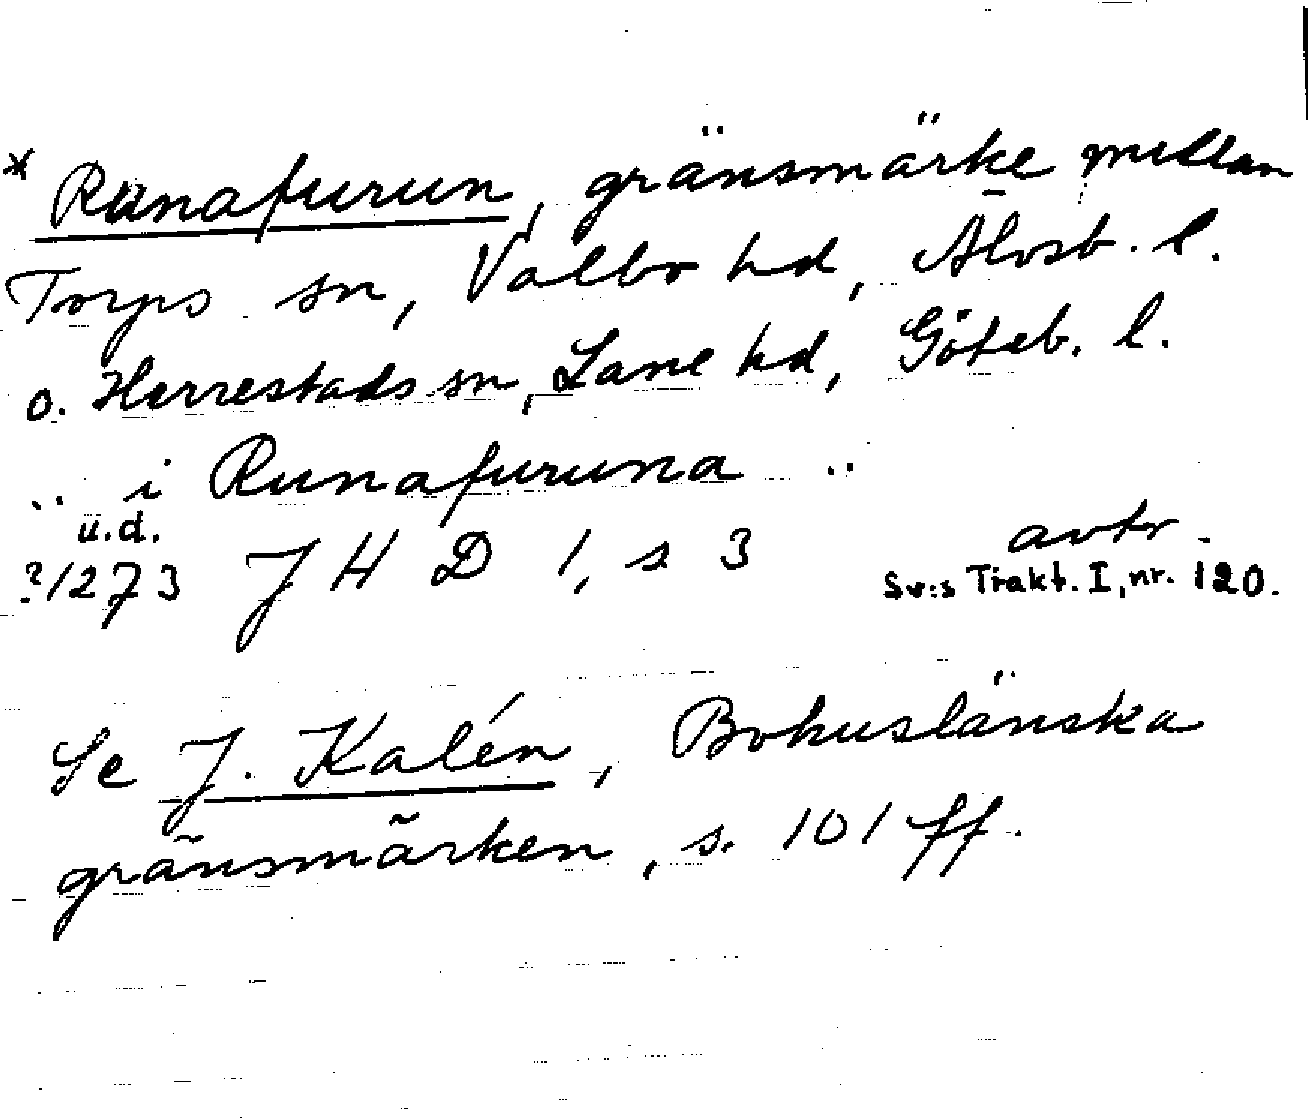 * Runafurun, gränsmärke mellan
Torps sn, Valbo hd, Älvsb. l.
o. Herrestads sn, Lane hd, Göteb. l.
.. i Runafuruna ..
u.d.
?/1273 JHD 1, s 3 avtr.
Sv:s Trakt. I, nr. 120.
Se J. Kalén, Bohuslänska
gränsmärken, s. 101 ff.